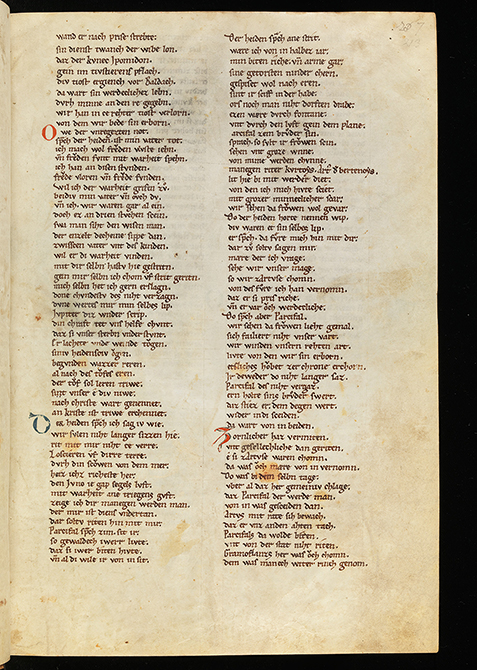 wand er nach prise strebte:
sin dienst twanch der wibe lon.
daz der kvnec Ipomidon.
gein im rivstierens pflach.
div tiost ergiench vor Baldach.
da wart sin werdeclicher lebn.
dvrh minne an den re gegebn.
wir han in ze rehter tiost verlorn.
von dem wir bede sin erborn.
Owe der vnergezten not.
sprach der heiden. ist min vater tot:
ich mach wol frǒden vlvst iehn.
vn̄ frǒden fvnt mit warheit spehn.
ich han an disen stvnden.
frǒde vlorn vn̄ frǒde fvnden.
wil ich der warheit grifen zv̊.
beidiv min vater vn̄ ovch dv.
vn̄ ich. wir waren gar al ein.
doch ez an drien stvchen scein.
swa man siht den wisen man.
der enzelt decheine sippe dan.
zwissken vater vnt des kinden.
wil er di warheit vinden.
mit dir selbn hastv hie gestriten.
gein mir selbn ich chom vf strit geriten.
mich selbn het ich gern erslagn.
done chvndestv des niht verzagn.
dvne wertes mir min selbes lip.
Ivpiter diz wnder scrip.
din chraft tet vns helfe chvnt.
daz si vnser sterbn vnderstvnt.
Er lachete vnde weinde tǒgen.
siniv heidensciv ǒgen.
begvnden wazzer reren.
al nach des tǒfes eren.
der tǒf sol leren triwe.
sint vnser e div niwe.
nach christe wart genennet.
an kriste ist triwe erchennet.
Der heiden sprach ich sag iv wie.
wir solen niht langer sizzen hie.
rit mit mir niht ze verre.
Loscieren vf dirre terre.
dvrh din scǒwen von dem mer.
heiz ichz richeste her.
den Ivno ie gap segels lvft.
mit warheit ane triegens gvft.
zeige ich dir manegen werden man.
der mir ist diens vndertan.
dar soltv riten hin mit mir.
Parcifal sprach zvn. sit ir
so gewaldech iwerr livte.
daz si iwer biten hivte.
vn̄ al di wile ir von in sit.
Der heiden sprach ane strit.
ware ich von in halbez iar.
min biten riche vn̄ arme gar.
sine getorsten ninder chern.
gespiset wol nach eren.
sint ir sciff in der habe.
ors noch man niht dorften drabe.
ezen ware dvrch fontane.
vnt dvrch den lvft gein dem plane.
arcifal zem brvder sin.
sprach. so svlt ir frǒwen sein.
sehen vnt groze wnne.
von iwine werden chvnne.
manegen riter kvrtoys. Artvs d᷑ bertenoys.
lit hie bi mit werder diet.
von den ich mich hivte sciet.
mit grozer minneclicher scar.
wir sehen da frǒwen wol gevar.
Do der heiden horte nennen wip.
div waren er sin selbes lip.
er sprach. da fvre mich hin mit dir.
dar zv̊ soltv sagen mir.
mare der ich vrage.
sehe wir vnser mage.
so wir zArtvse chomn.
von des fvre ich han vernomn.
daz er si pris riche.
vn̄ er var ǒch werdecliche.
Do sprach aber Parcifal.
wir sehen da frǒwen lieht gemal.
sich failiert niht vnser vart.
wir vinden vnsern rehten art.
livte von den wir sin erborn.
etsliches hǒbet zer chrone erchorn.
Ir deweder do niht langer saz.
Parcifal des niht vergaz.
ern holte sins brvder swert.
daz stiez er. dem degen wert.
wider in di sceiden.
da wart von in beiden.
Zornlicher haz vermiten.
vnt gesellechliche dan geriten.
e si zArtvse waren chomn.
da was ǒch mare von in vernomn.
Do was bi dem selbn tage:
vber al daz her gemeiniv chlage:
daz Parcifal der werde man.
von in was gesceiden dan.
Artvs mit rate sih bewach.
daz er vnz anden ahten tach.
Parcifals da wolde biten.
vnt von der stat niht riten.
Gramoflanzs her was ǒch chomn.
dem was manech witer rinch genom.